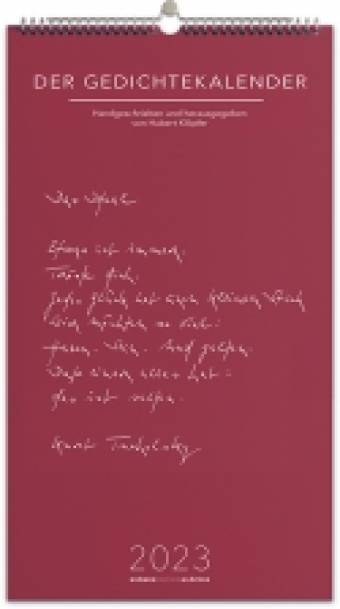 DER GEDICHTEKALENDER
Handgeschrieben und herausgegeben
von Hubert Klöpfer
Das Ideal
Etwas ist immer.
Tröste dich.
Jedes Glück hat einen kleinen Stich.
Wir möchten so viel:
Haben. Sein. Und gelten.
Daß einer alles hat:
das ist selten.
Kurt Tucholsky
2023